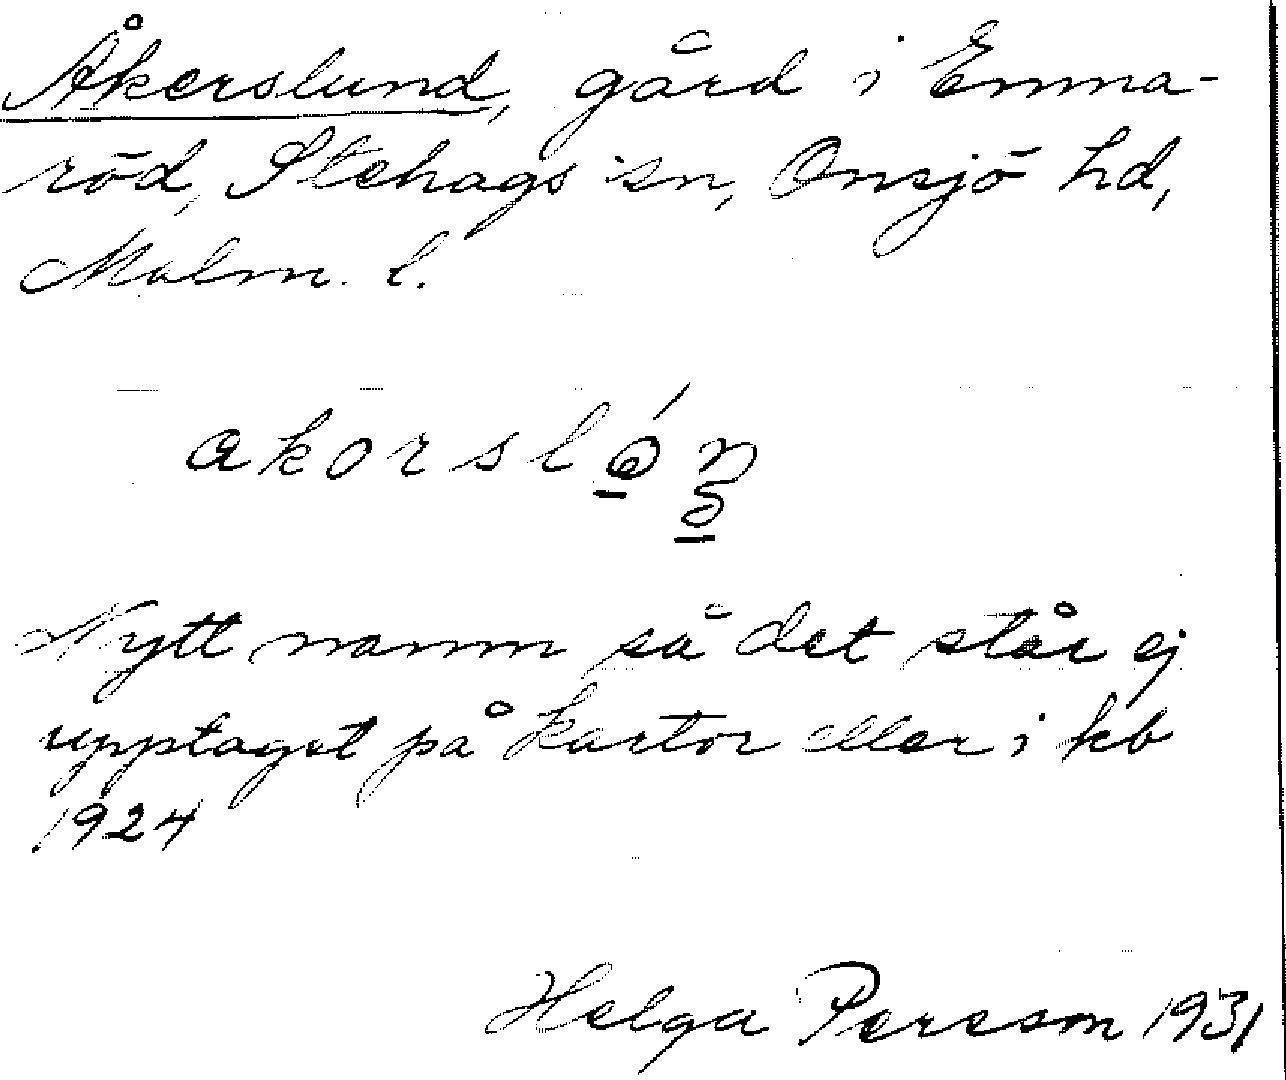 Åkerslund, gård i Emma-
röd, Stehags sn, Onsjö hd,
Malm. l.
Nytt namn så det står ej
upptaget på kartor eller i kb
1924
Helga Persson 1931